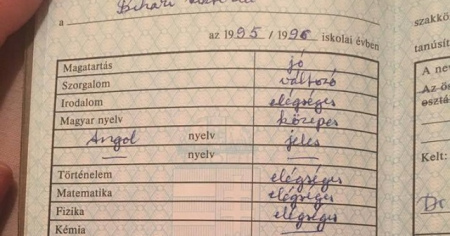 Bihari
a
az 1995 / 1996 iskolai évben
Magatartás jó
Szorgalom változó
Irodalom elégséges
Magyar nyelv közepes
Angol nyelv jeles
— nyelv —
Történelem elégséges
Matematika elégséges
Fizika elégséges
Kémia
szakkö
tanúsít
A nev
Az ős
osztá
Kelt:
Dr